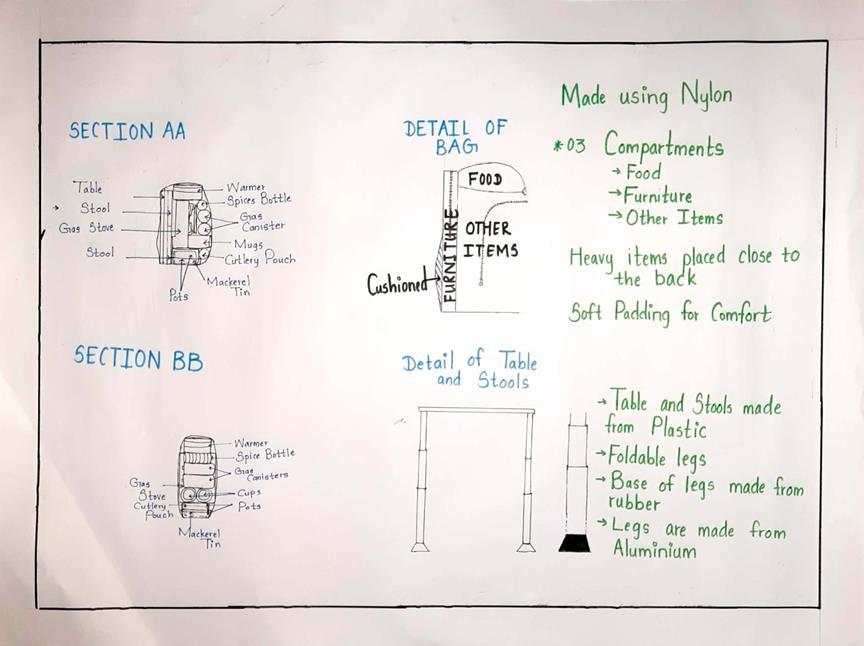 SECTION AA
Table
Stool
Gas Stove
Stool
Pots
Mackerel
Tin
Warmer
Spices Bottle
Gas
Canister
Mugs
Cutlery Pouch
SECTION BB
Gas
Stove
Cutlery
Pouch
Mackerel
Tin
Warmer
Spice Bottle
Gas
Canisters
Cups
Pots
DETAIL OF
BAG
FOOD
FURNITURE
OTHER
ITEMS
Cushioned
Detail of Table
and Stools
Made using Nylon
*03 Compartments
→ Food
→ Furniture
→ Other Items
Heavy items placed close to
the back
Soft Padding for Comfort
→ Table and Stools made
from Plastic
→ Foldable legs
→ Base of legs made from
rubber
→ Legs are made from
Aluminium